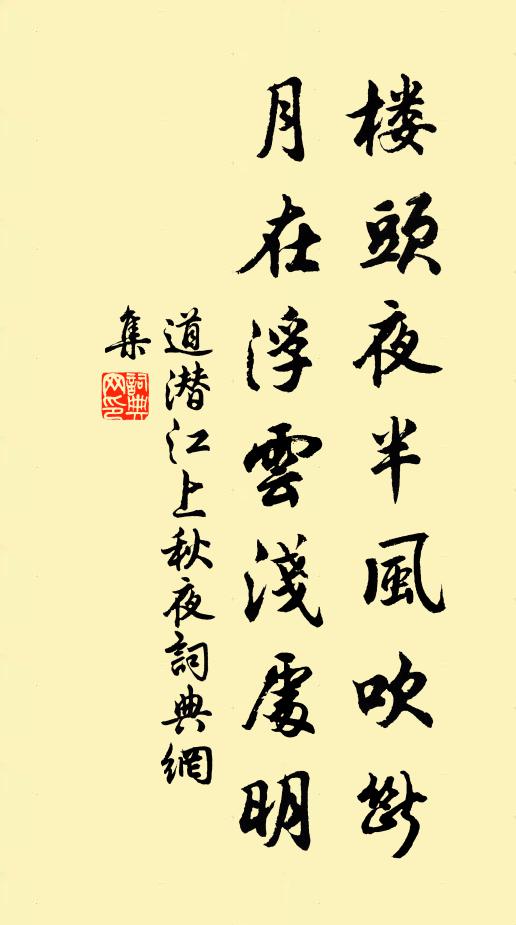 楼頭夜半風吹斷
月在浮雲淺處明
道潜江上秋夜詞典網
集
詞典
网印